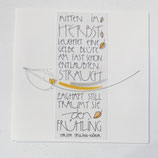 MITTEN IM
HERBST
LEUCHTET EINE
GELBE BLÜTE
AM FAST SCHON
ENTLAUBTEN
STRAUCH
ZAGHAFT STILL
TRÄUMT SIE
den
FRÜHLING